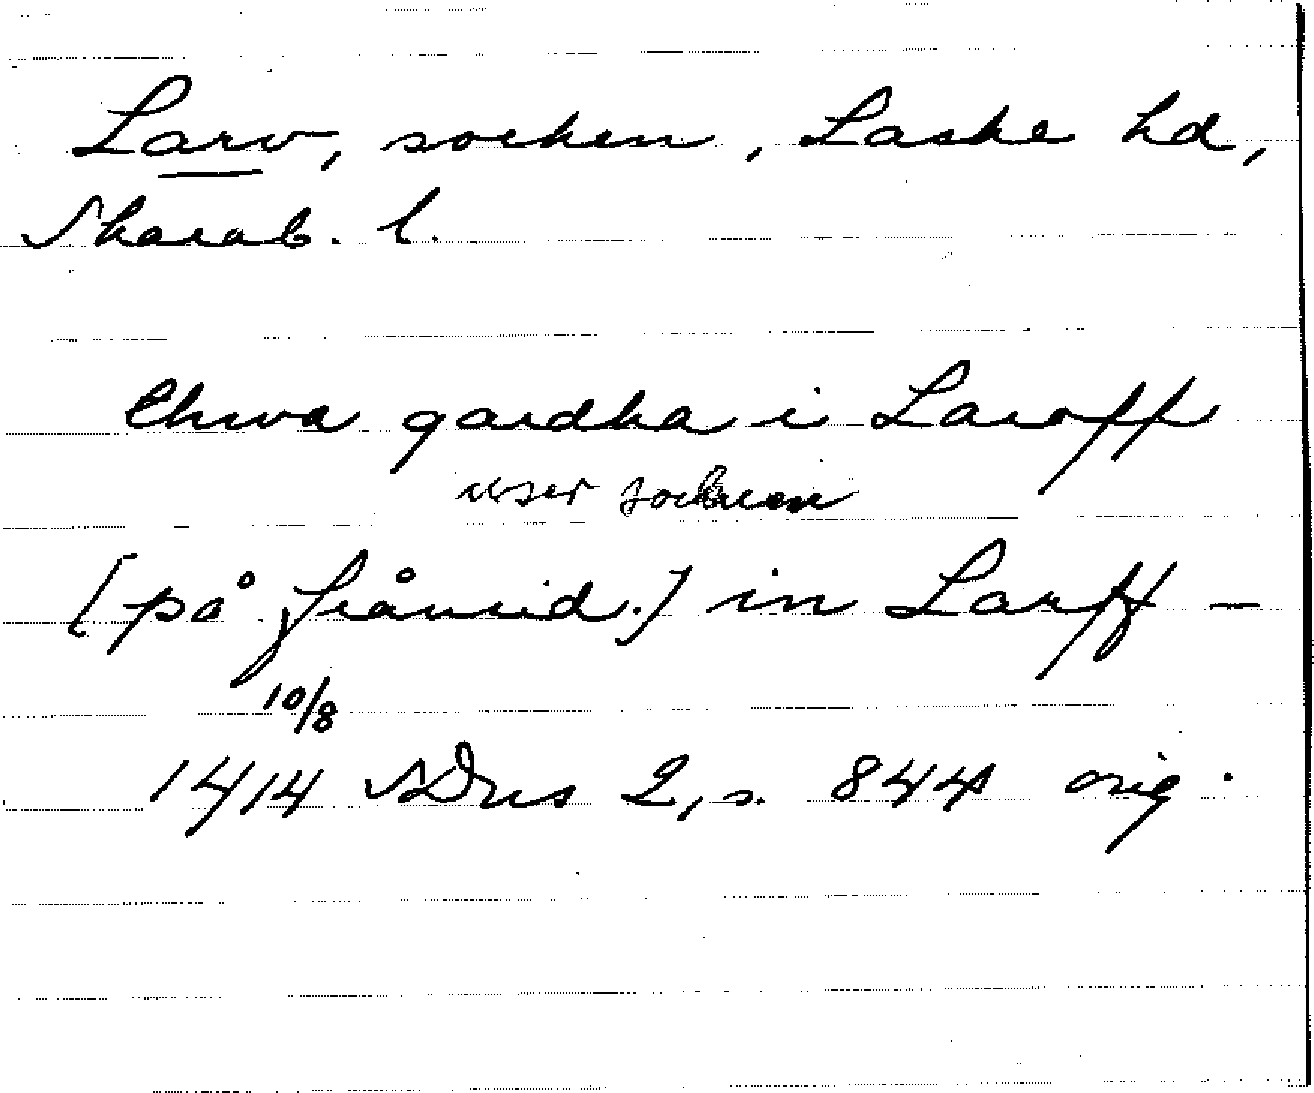 Larv, socken, Laske hd,
Skarab. l.
Ehwa gardha i Laroff
avser socknen
[på frånsid.] in Larff –
10/8
1414 SDns 2, s. 844 orig.